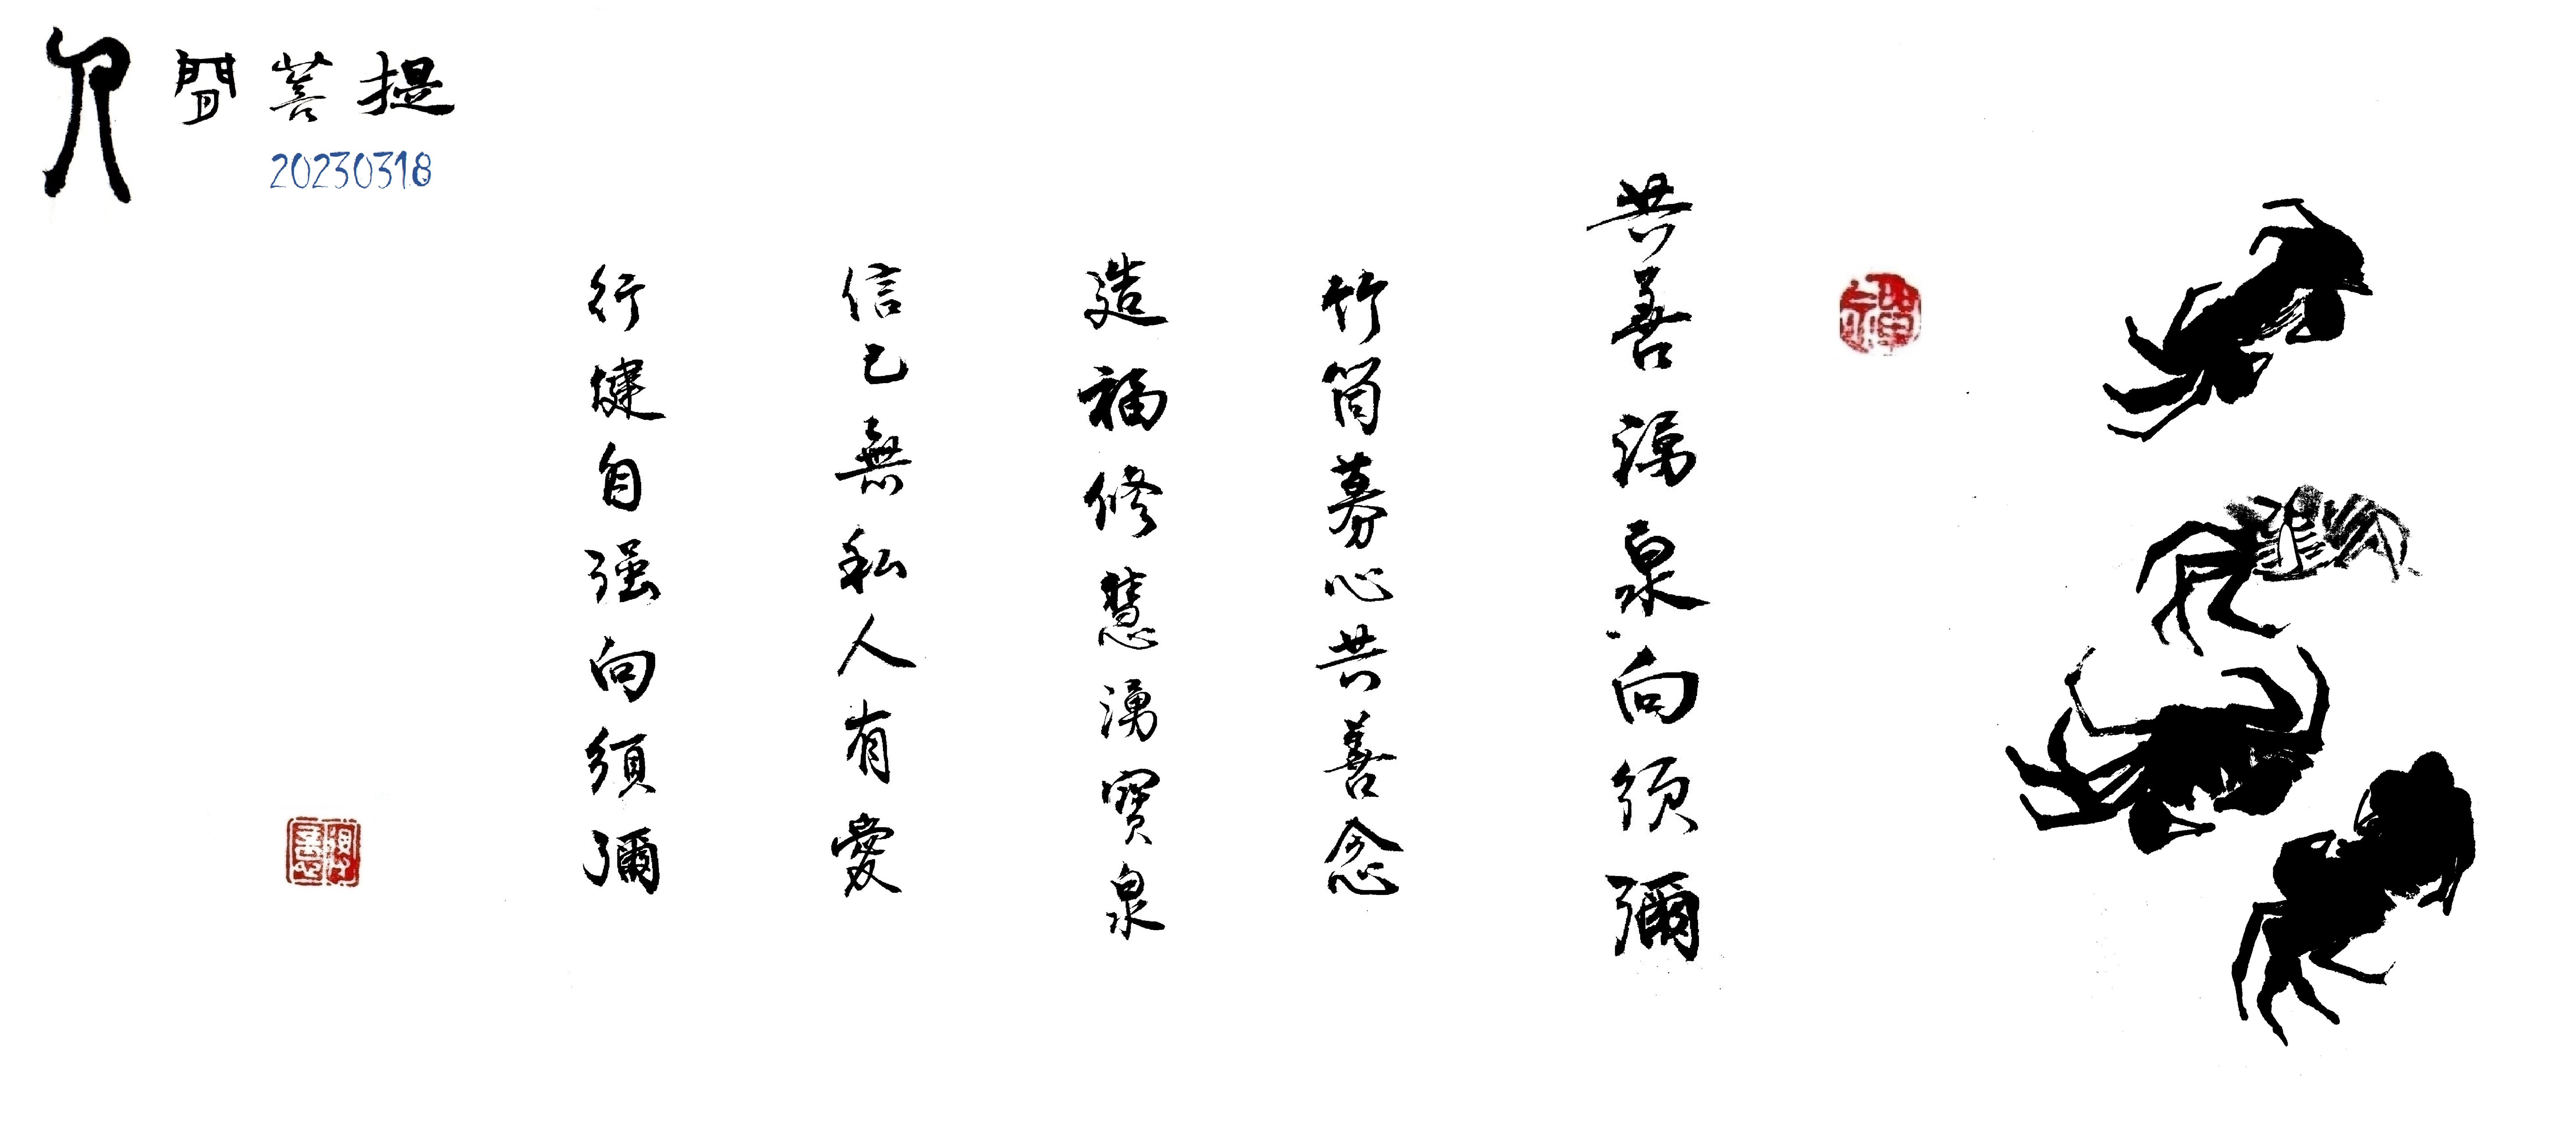 人間菩提
20230318
共善湧泉向須彌
竹筒募心共善念
造福修慧湧寶泉
信己無私人有愛
行健自强向須彌
禪